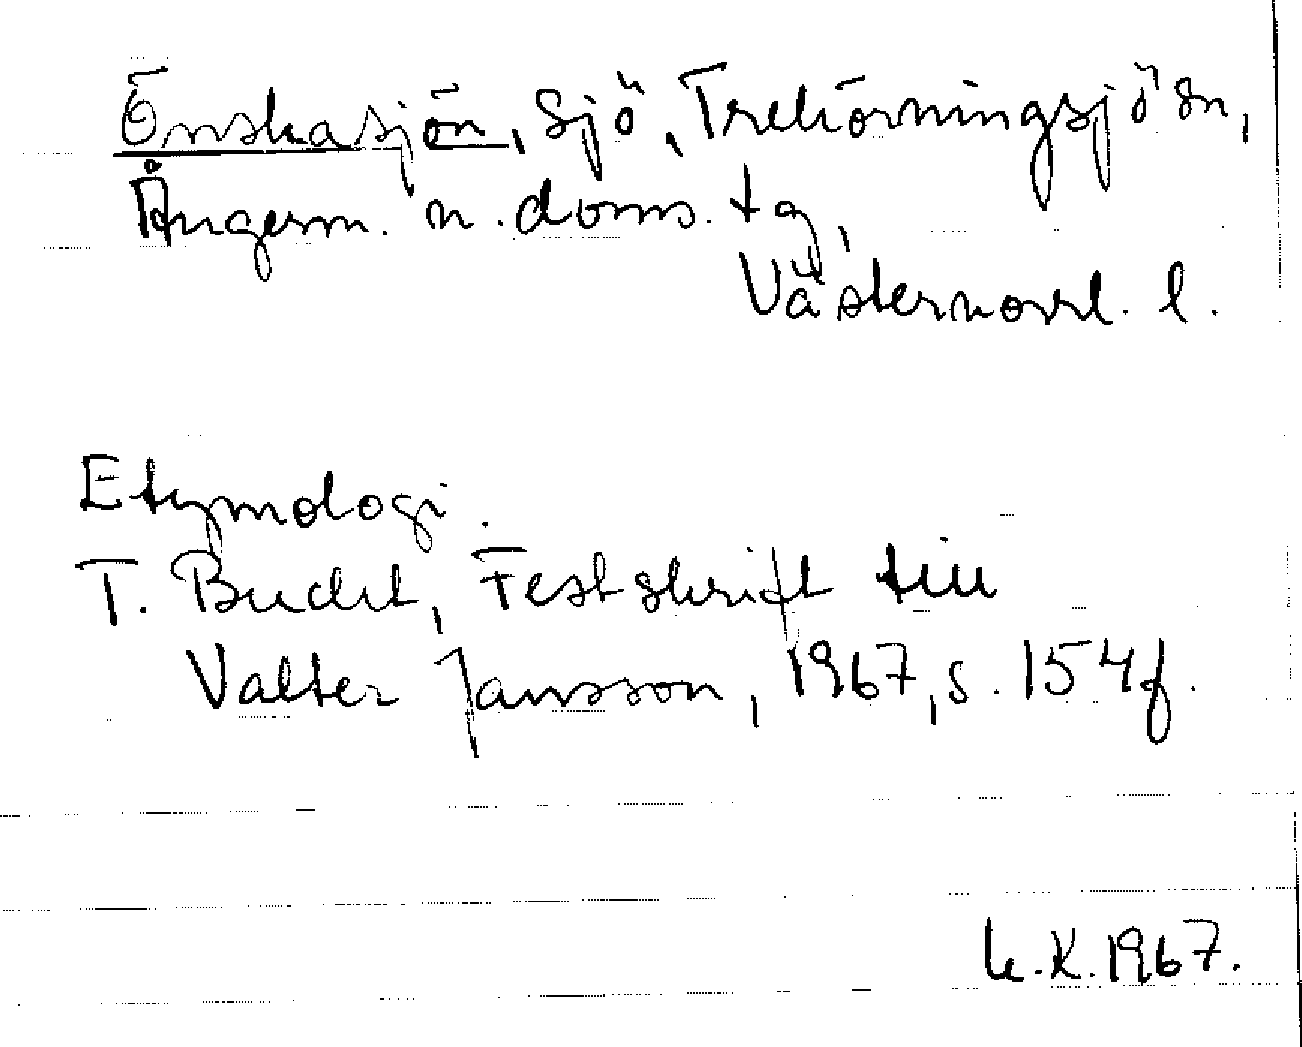 Önskasjön, Sjö, Trehörningsjö sn,
Ångerm. n. doms. tg,
Västernorrl. l.
Etymologi.
T. Bucht, Festskrift till
Valter Jansson, 1967, s. 154f.
K.K. 1967.